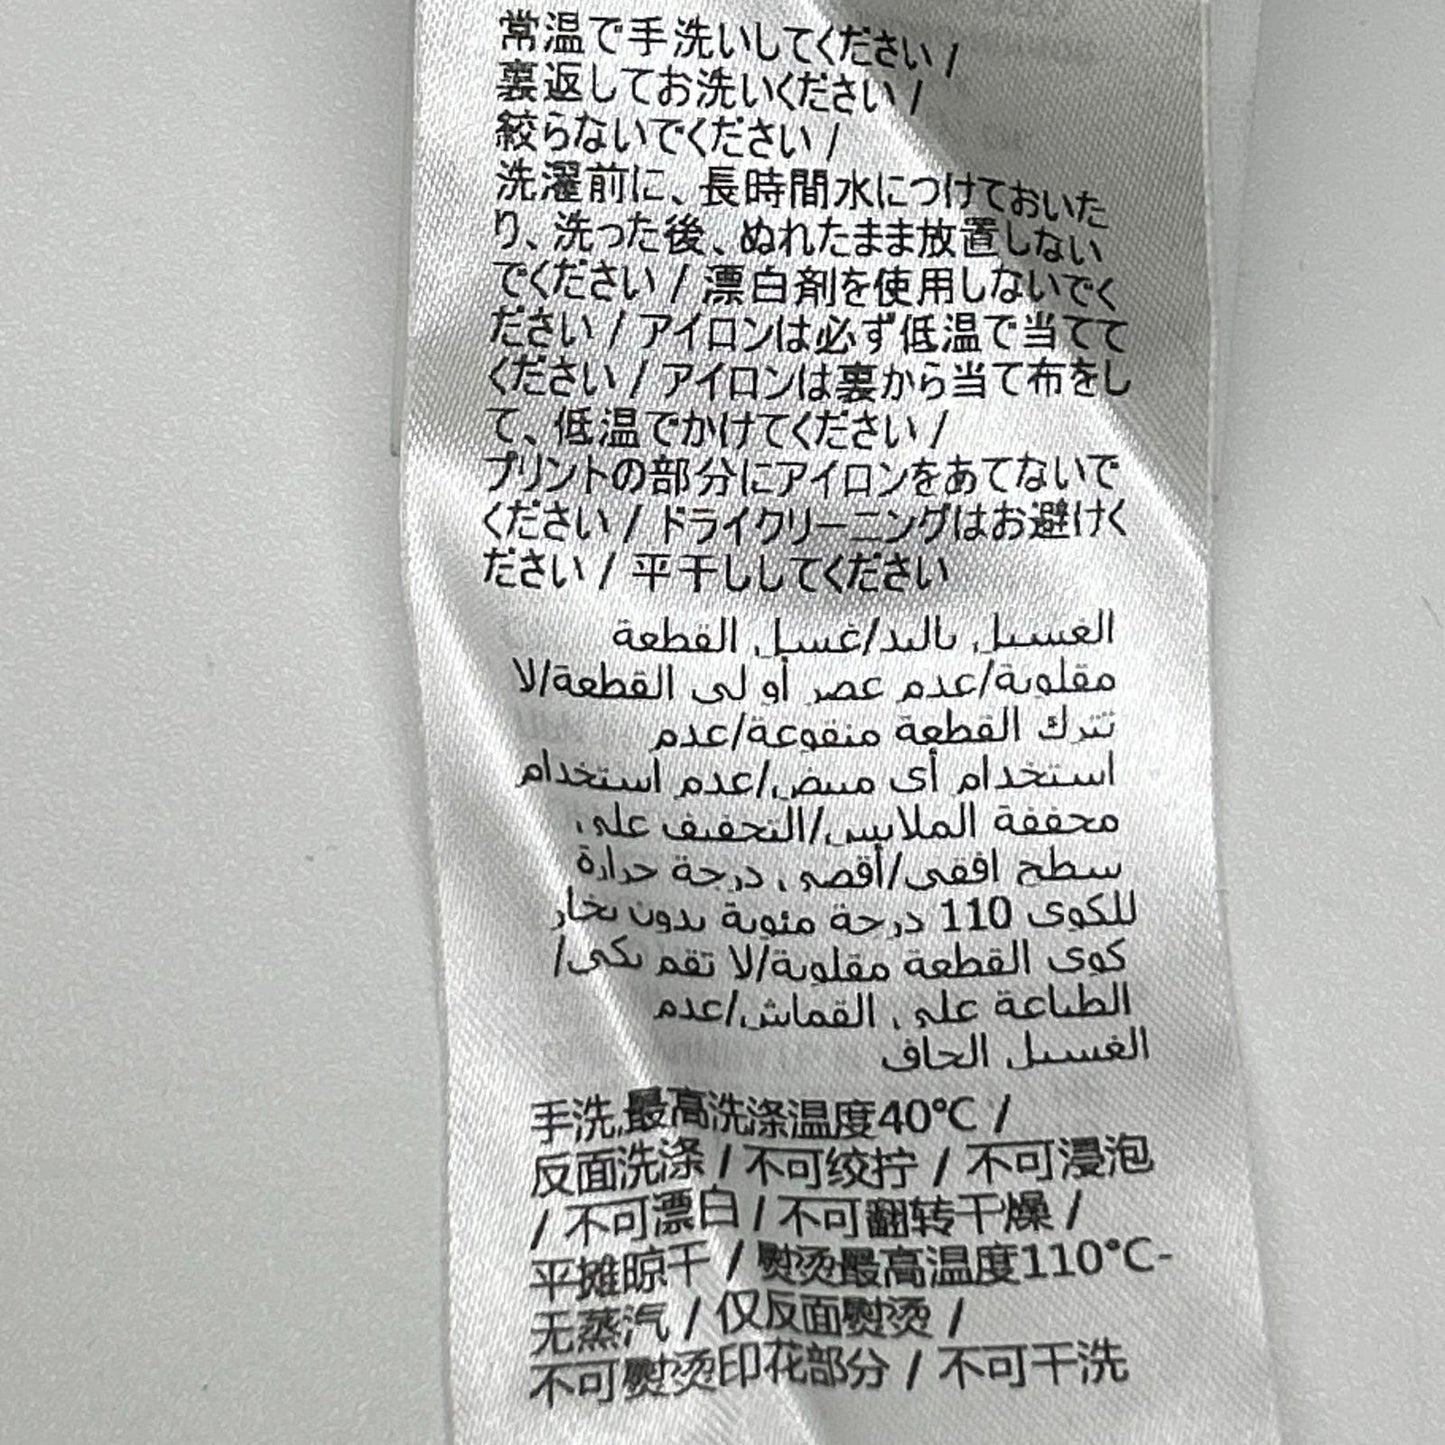 常温で手洗いしてください /
裏返してお洗いください /
絞らないでください /
洗濯前に、長時間水につけておいた
り、洗った後、ぬれたまま放置しない
でください / 漂白剤を使用しないでく
ださい / アイロンは必ず低温で当てて
ください / アイロンは裏から当て布をし
て、低温でかけてください /
プリントの部分にアイロンをあてないで
ください / ドライクリーニングはお避けく
ださい / 平干ししてください
الغسيل باليد/غسيل القطعة
مقلوبة/عدم عصر أو لى القطعة/لا
تترك القطعة منقوعة/عدم
استخدام أى مبيض/عدم استخدام
مجففة الملابس/التجفيف على
سطح افقى/أقصى درجة حرارة
للكوى 110 درجة مئوية بدون بخار
كوى القطعة مقلوبة/لا تقم بكى/
الطباعة على القماش/عدم
الغسيل الجاف
手洗,最高洗涤温度40°C /
反面洗涤 / 不可绞拧 / 不可浸泡
/ 不可漂白 / 不可翻转干燥 /
平摊晾干 / 熨烫最高温度110°C-
无蒸汽 / 仅反面熨烫 /
不可熨烫印花部分 / 不可干洗